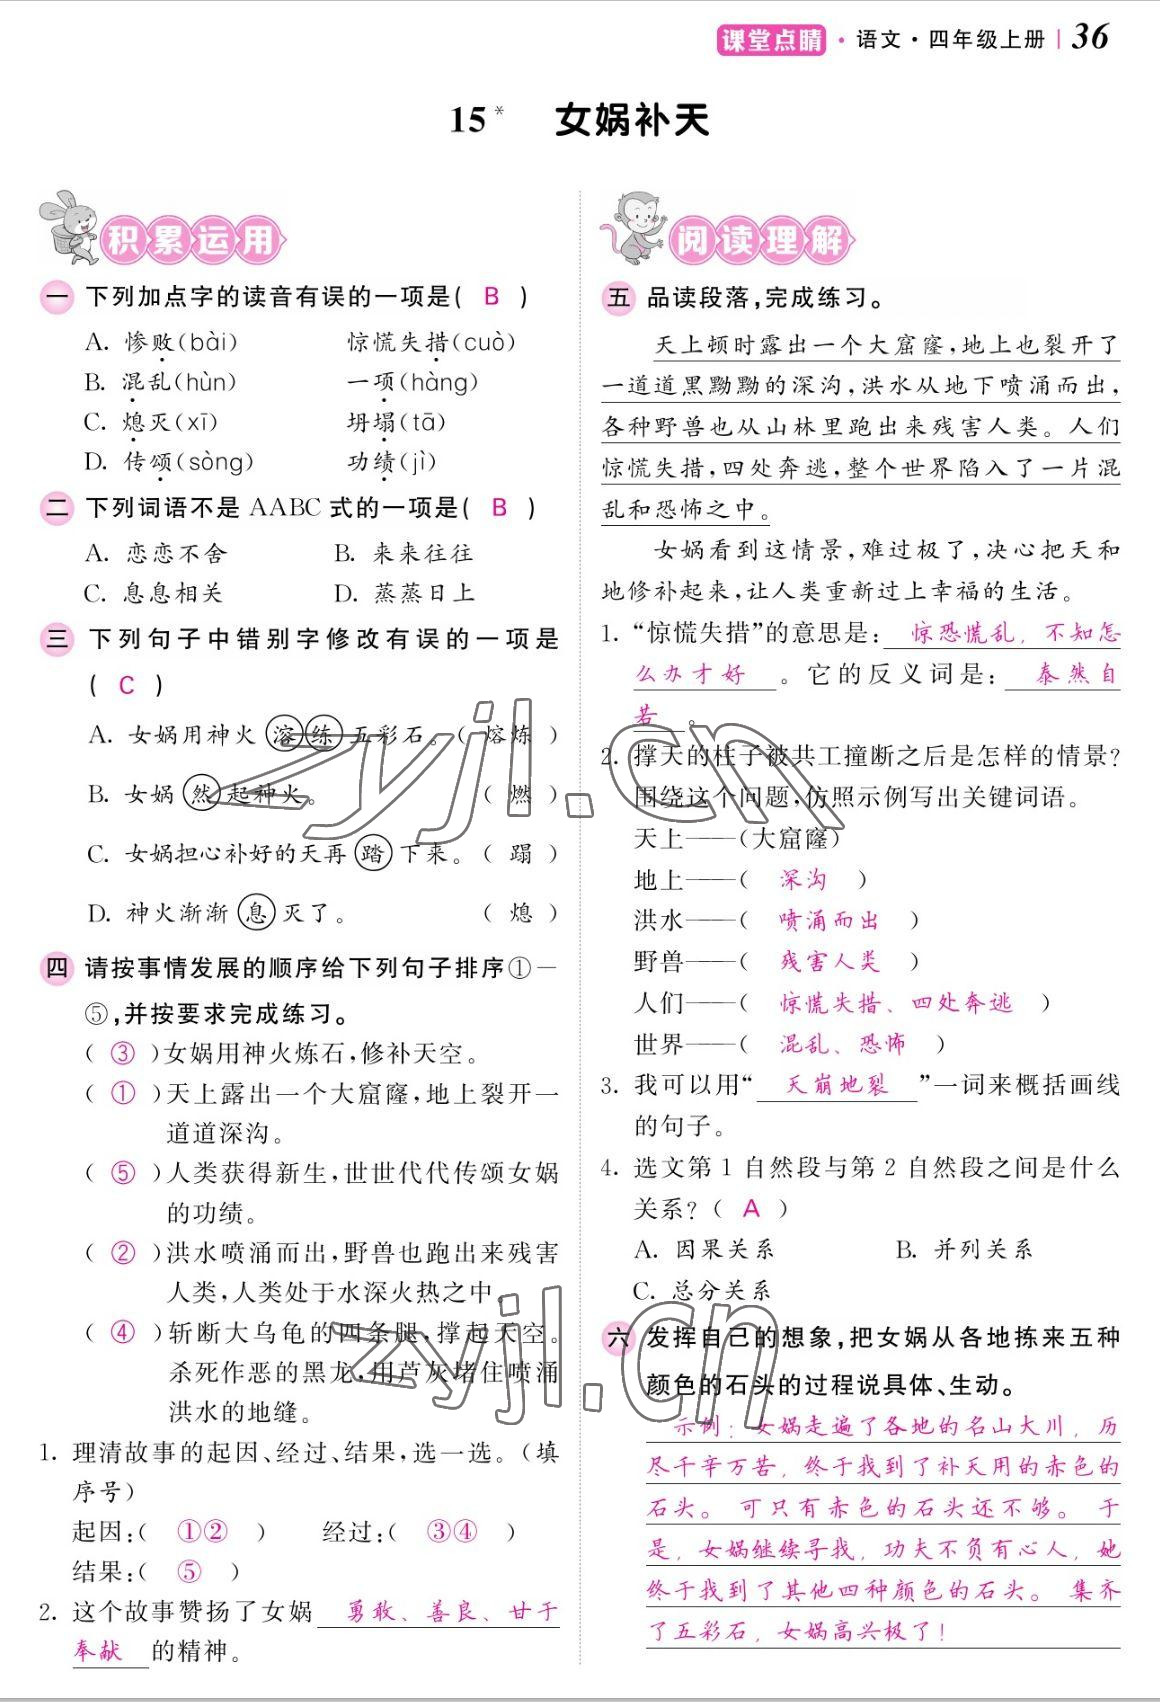 课堂点睛·语文·四年级上册 36
15* 女娲补天
积累运用
一 下列加点字的读音有误的一项是( B )
A. 惨败(bài) 惊慌失措(cuò)
B. 混乱(hùn) 一项(hàng)
C. 熄灭(xī) 坍塌(tā)
D. 传颂(sòng) 功绩(jì)
二 下列词语不是 AABC 式的一项是( B )
A. 恋恋不舍 B. 来来往往
C. 息息相关 D. 蒸蒸日上
三 下列句子中错别字修改有误的一项是
( C )
A. 女娲用神火溶练五彩石。( 熔炼 )
B. 女娲然起神火。 ( 燃 )
C. 女娲担心补好的天再踏下来。( 蹋 )
D. 神火渐渐息灭了。 ( 熄 )
四 请按事情发展的顺序给下列句子排序①—
⑤,并按要求完成练习。
( ③ )女娲用神火炼石,修补天空。
( ① )天上露出一个大窟窿,地上裂开一
道道深沟。
( ⑤ )人类获得新生,世世代代传颂女娲
的功绩。
( ② )洪水喷涌而出,野兽也跑出来残害
人类,人类处于水深火热之中。
( ④ )斩断大乌龟的四条腿,撑起天空。
杀死作恶的黑龙,用芦灰堵住喷涌
洪水的地缝。
1. 理清故事的起因、经过、结果,选一选。(填
序号)
起因:( ①② ) 经过:( ③④ )
结果:( ⑤ )
2. 这个故事赞扬了女娲 勇敢、善良、甘于
奉献 的精神。
阅读理解
五 品读段落,完成练习。
天上顿时露出一个大窟窿,地上也裂开了
一道道黑黝黝的深沟,洪水从地下喷涌而出,
各种野兽也从山林里跑出来残害人类。人们
惊慌失措,四处奔逃,整个世界陷入了一片混
乱和恐怖之中。
女娲看到这情景,难过极了,决心把天和
地修补起来,让人类重新过上幸福的生活。
1. “惊慌失措”的意思是: 惊恐慌乱,不知怎
么办才好 。它的反义词是: 泰然自
若 。
2. 撑天的柱子被共工撞断之后是怎样的情景?
围绕这个问题,仿照示例写出关键词语。
天上——(大窟窿)
地上——( 深沟 )
洪水——( 喷涌而出 )
野兽——( 残害人类 )
人们——( 惊慌失措、四处奔逃 )
世界——( 混乱、恐怖 )
3. 我可以用“ 天崩地裂 ”一词来概括画线
的句子。
4. 选文第 1 自然段与第 2 自然段之间是什么
关系?( A )
A. 因果关系 B. 并列关系
C. 总分关系
六 发挥自己的想象,把女娲从各地拣来五种
颜色的石头的过程说具体、生动。
示例:女娲走遍了各地的名山大川,历
尽千辛万苦,终于找到了补天用的赤色的
石头。 可只有赤色的石头还不够。 于
是,女娲继续寻找,功夫不负有心人,她
终于找到了其他四种颜色的石头。 集齐
了五彩石,女娲高兴极了!
zyjl.cn
zyjl.cn